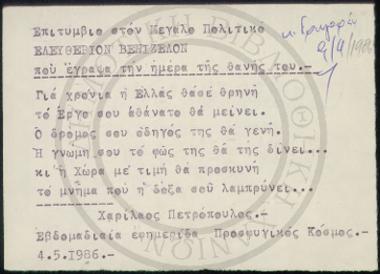 Επιτυμβιο στόν Μεγαλο Πολιτικό
ΕΛΕΥΘΕΡΙΟΝ ΒΕΝΙΖΕΛΟΝ
πού έγραψα την ημέρα τής θανής του.-
Γιά χρόνια ή Ελλάς θάσέ θρηνή
τό Εργο σου αθάνατο θά μείνει.
Ο δρομος σου οδηγός της θά γενή.
Η γνωμή σου τό φώς της θά τής δίνει...
κι ή Χώρα μέ τιμή θά προσκυνή
τό μνήμα πού ή δοξα σού λαμπρύνει...
Χαρίλαος Πετρόπουλος.-
Εβδομαδιαία εφημερίδα Προσφυγικός Κόσμος.-
4.5.1986.-